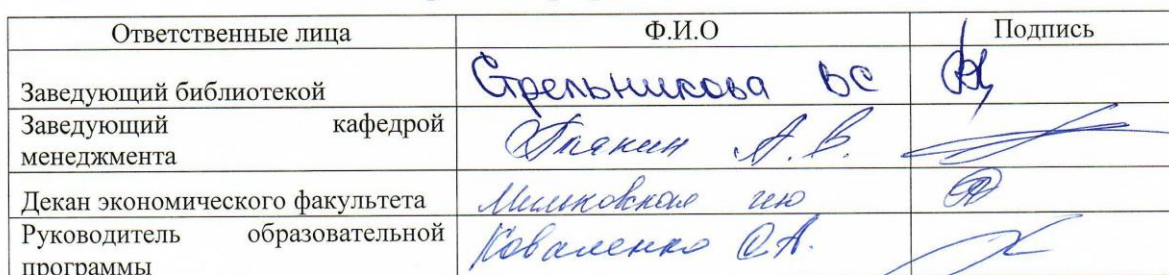 Ответственные лица Ф.И.О Подпись
Заведующий библиотекой Стрельникова ВС
Заведующий кафедрой
менеджмента А.В.
Декан экономического факультета
Руководитель образовательной Коваленко С.А.
программы